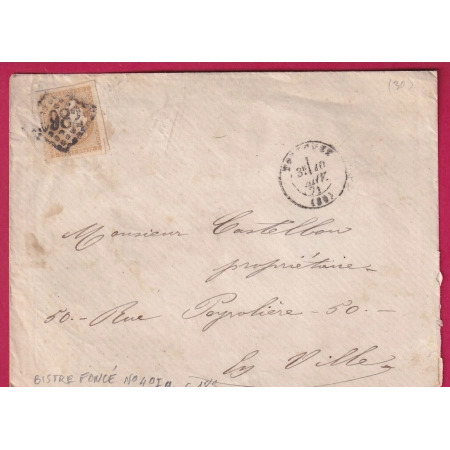 (30)
98
3E 10
JANV.
71
(30)
Monsieur Castelbon
propriétaire
50.- Rue Peyrolière - 50.-
En Ville
BISTRE FONCÉ No 40